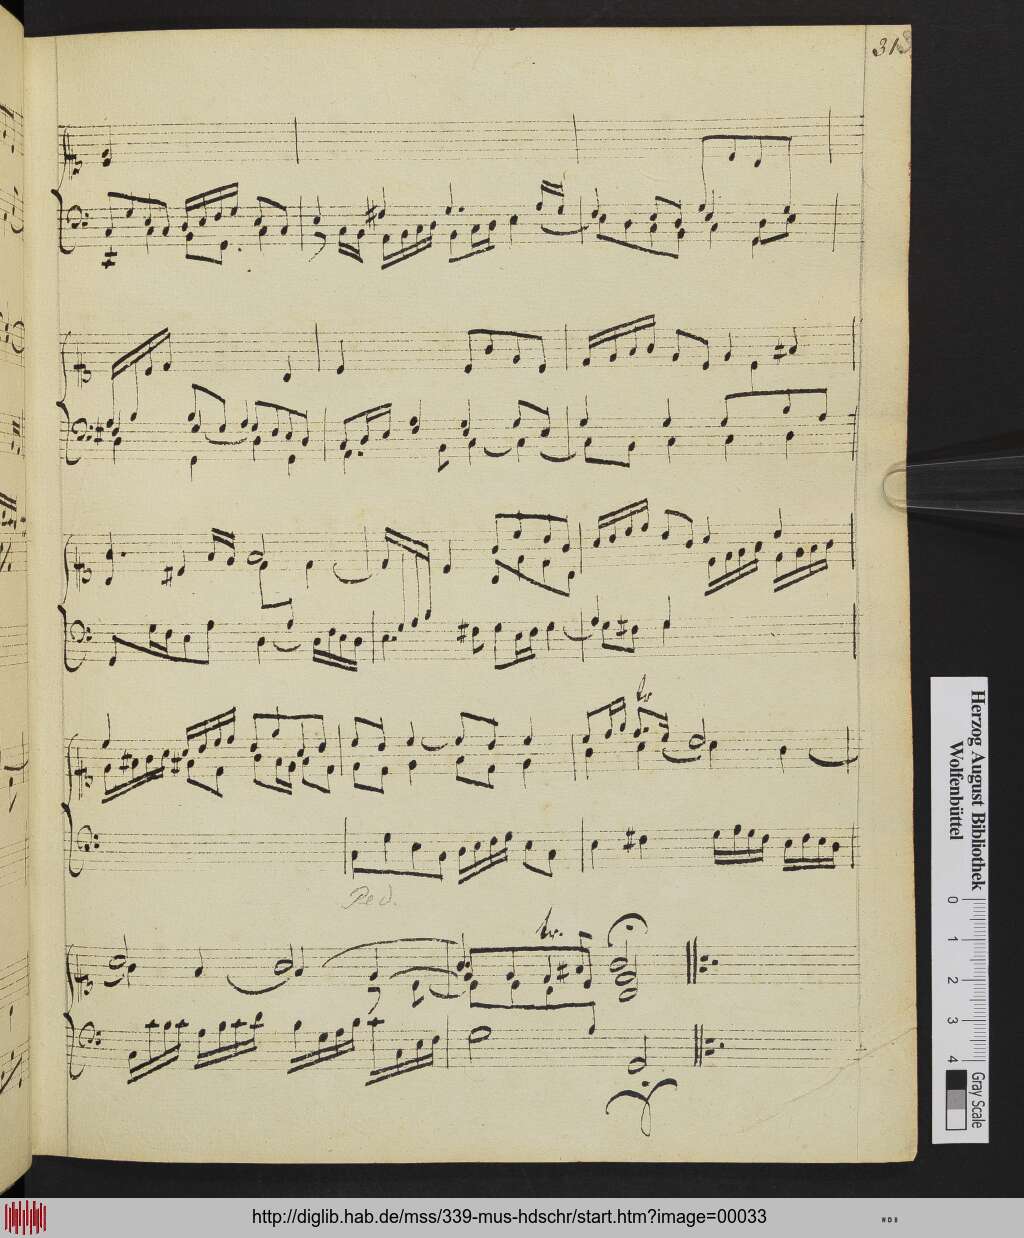 313
tr
Ped.
tr.
Herzog August Bibliothek
Wolfenbüttel
0 1 2 3 4 Gray Scale
http://diglib.hab.de/mss/339-mus-hdschr/start.htm?image=00033